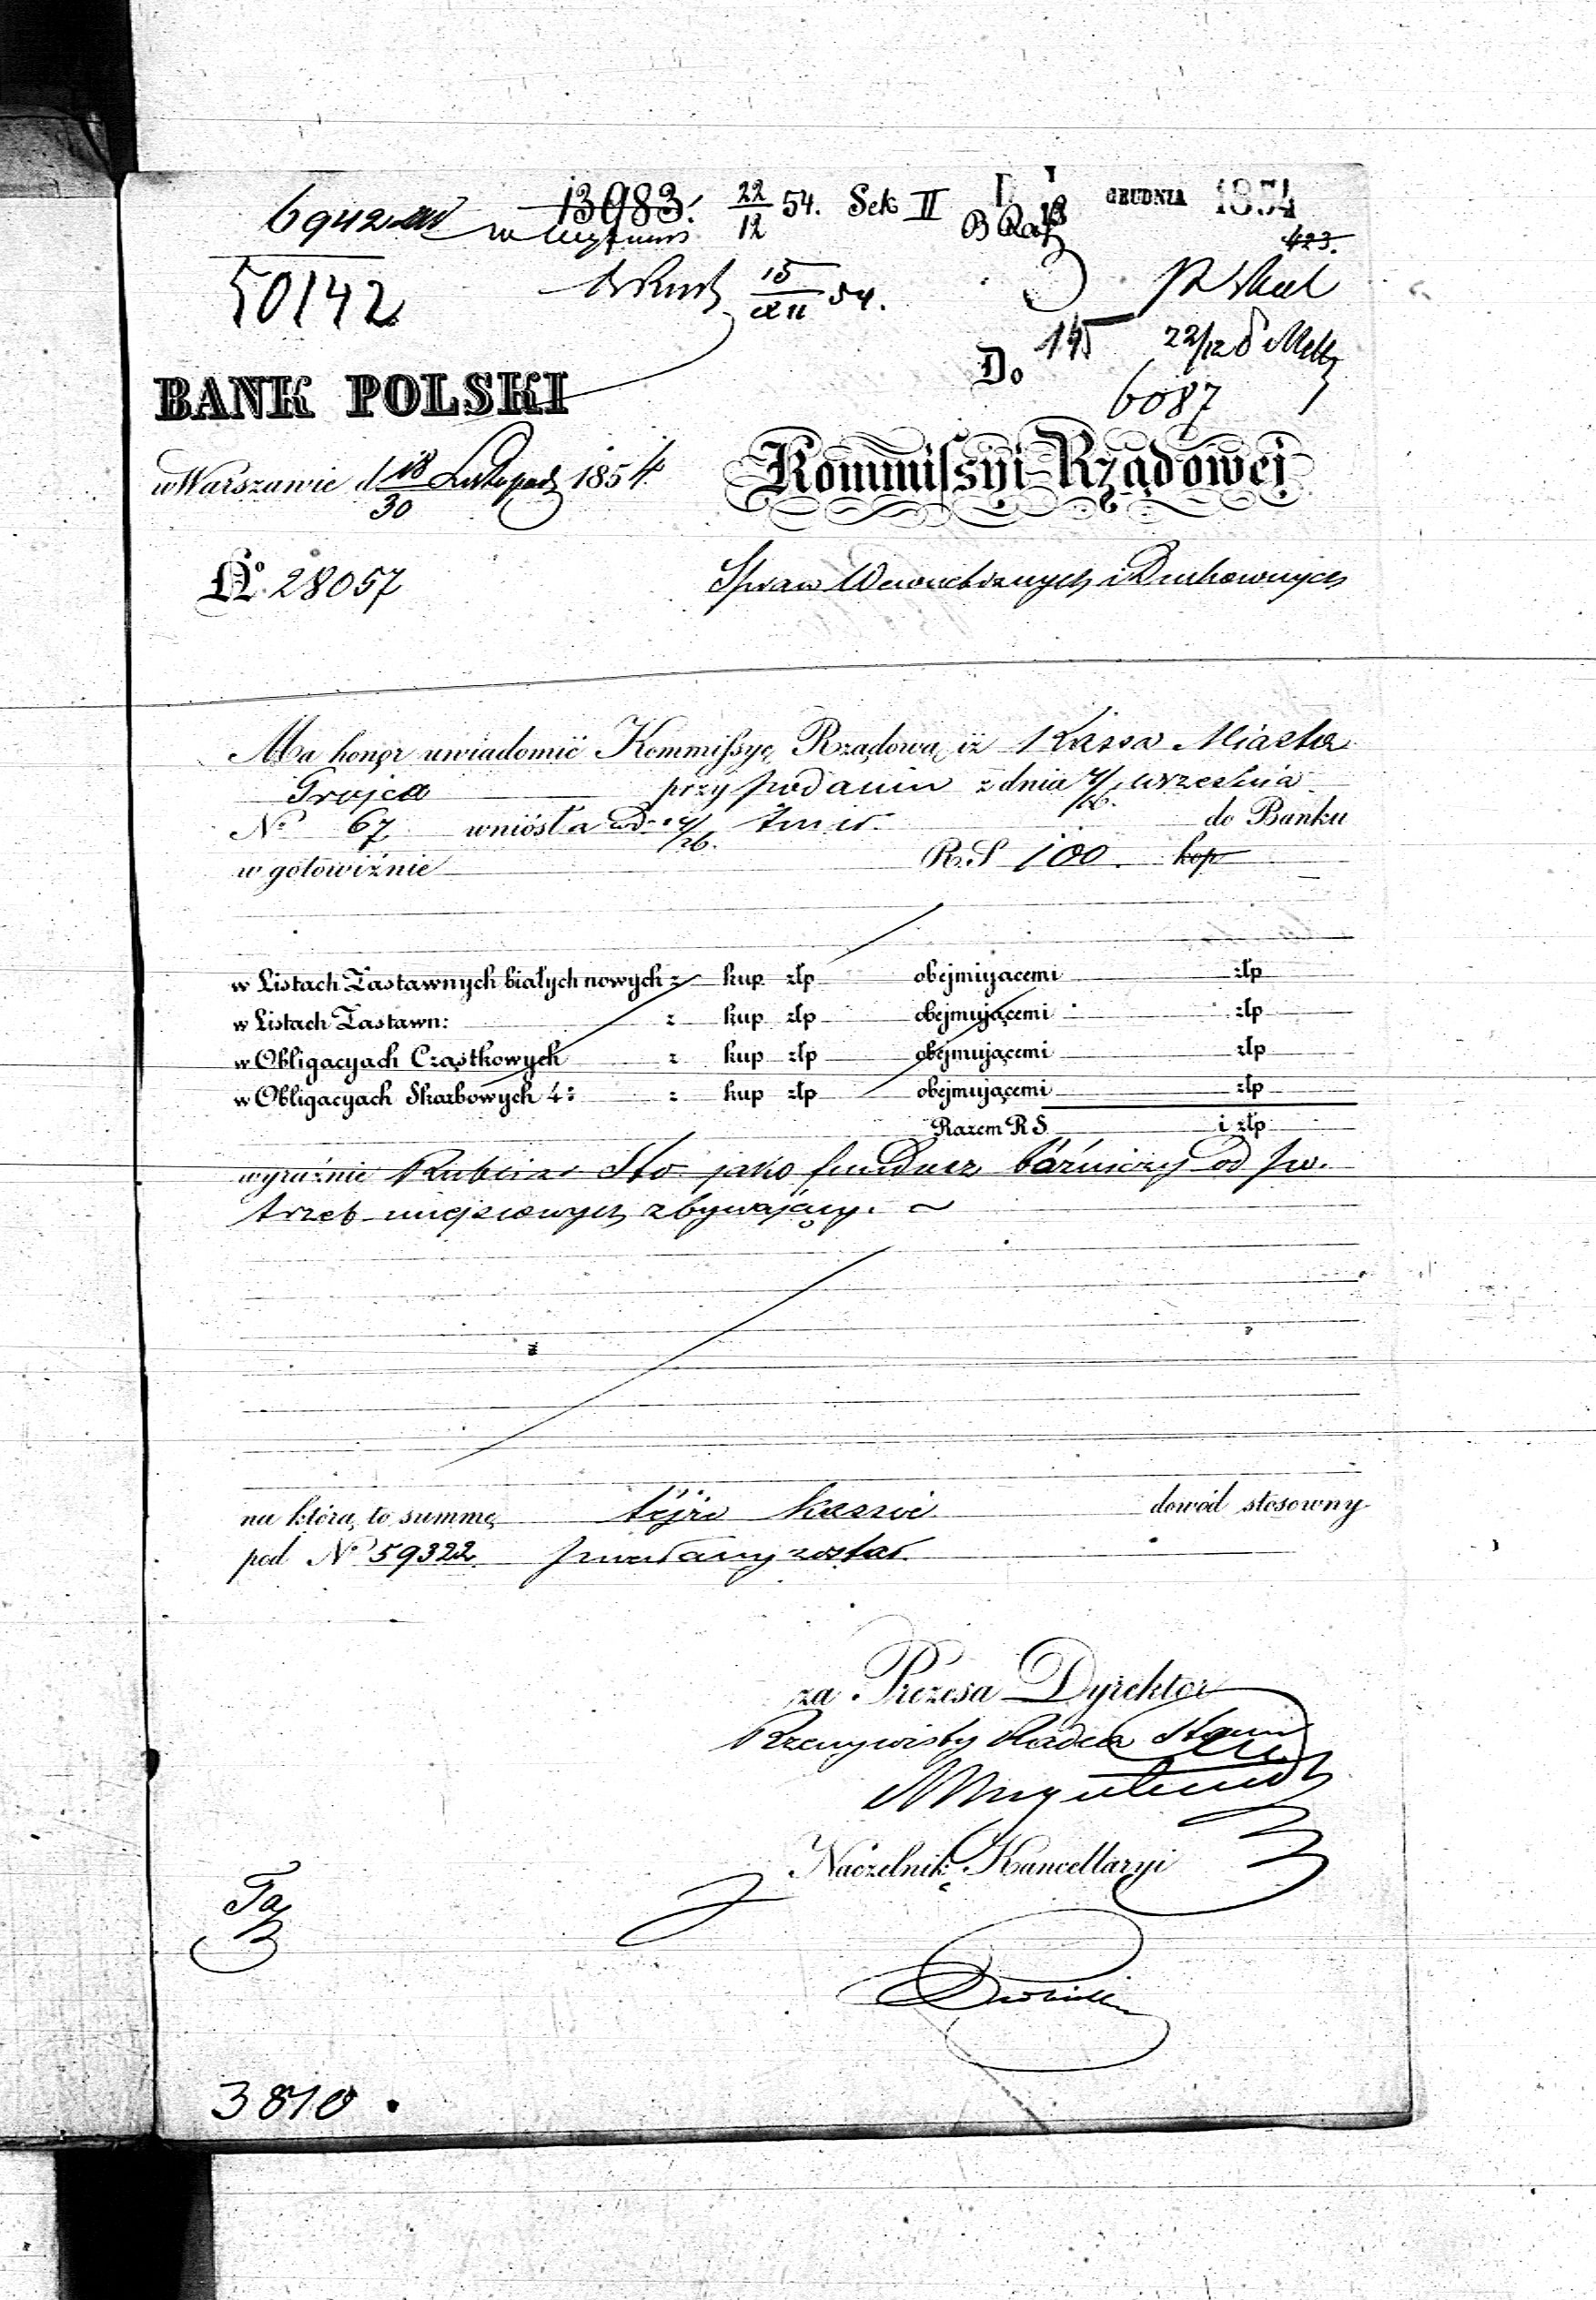 6942 13983. 22/12 54. Sek II GRUDNIA 1854
423.
50142 15/XII 54.
145 22/12
Do 6087
BANK POLSKI
w Warszawie d 18/30 Listopada 1854.
Kommissyi Rządowej
No. 28057 Spraw Wewnętrznych i Duchownych
Ma honor uwiadomić Kommissyę Rządową iż Kassa Miasta
Grojca przy podaniu z dnia 4/16 września
No 67 wniosła do Banku
w gotowiźnie R.S 100. kop
w Listach Zastawnych białych nowych z kup złp obejmującemi złp
w Listach Zastawn: z kup złp obejmującemi złp
w Obligacyach Cząstkowych z kup złp obejmującemi złp
w Obligacyach Skarbowych 4: z kup złp obejmującemi złp
Razem R S i złp
wyraźnie Rubli sr Sto jako fundusz bóżniczy od po-
trzeb miejscowych zbywający.
na którą to summę tejże kassie dowód stosowny
pod No 59322. przesłany został.
za Prezesa Dyrektor
Rzeczywisty Radca Stanu
Naczelnik Kancellaryi
3810.